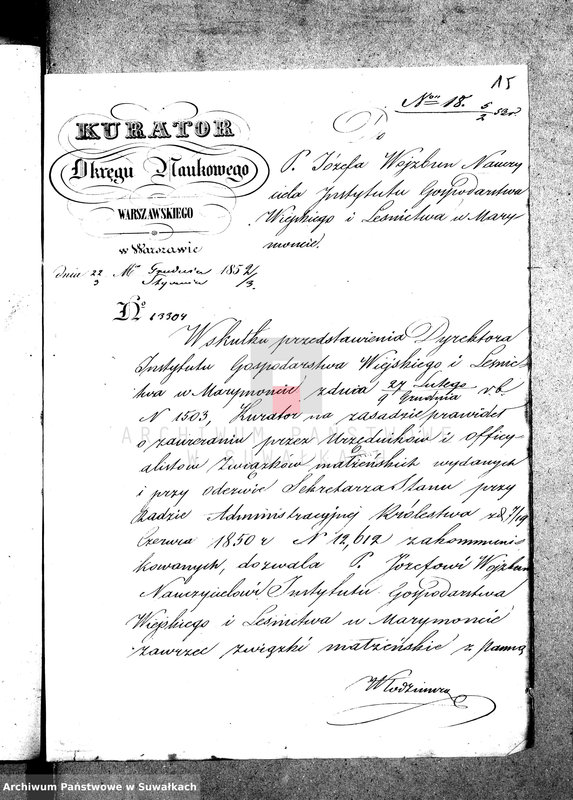 15
Nro 18. 5/2 53 r.
KURATOR
Okręgu Naukowego
WARSZAWSKIEGO
w Warszawie
dnia 22/3 Mca Grudnia/Stycznia 1852/3.
No 13304
Do
P. Józefa Wojzbun Nauczy
ciela Instytutu Gospodarstwa
Wiejskiego i Leśnictwa w Mary
moncie.
Wskutku przedstawienia Dyrektora
Instytutu Gospodarstwa Wiejskiego i Leśnic
twa w Marymoncie z dnia 27 Lutego/9 Grudnia r. b.
N 1503 Kurator na zasadzie prawideł
o zawieraniu przez Urzędników i Officy
alistów związków małżeńskich wydanych
i przy odezwie Sekretarza Stanu przy
Radzie Administracyjnej Królestwa z d. 7/19
Czerwca 1850 r N 12,612 zakommuni
kowanych, dozwala P. Józefowi Wojzbun
Nauczycielowi Instytutu Gospodarstwa
Wiejskiego i Leśnictwa w Marymoncie
zawrzeć związki małżeńskie z Panną
Włodzimirą
ARCHIWUM PAŃSTWOWE
W SUWAŁKACH
Archiwum Państwowe w Suwałkach